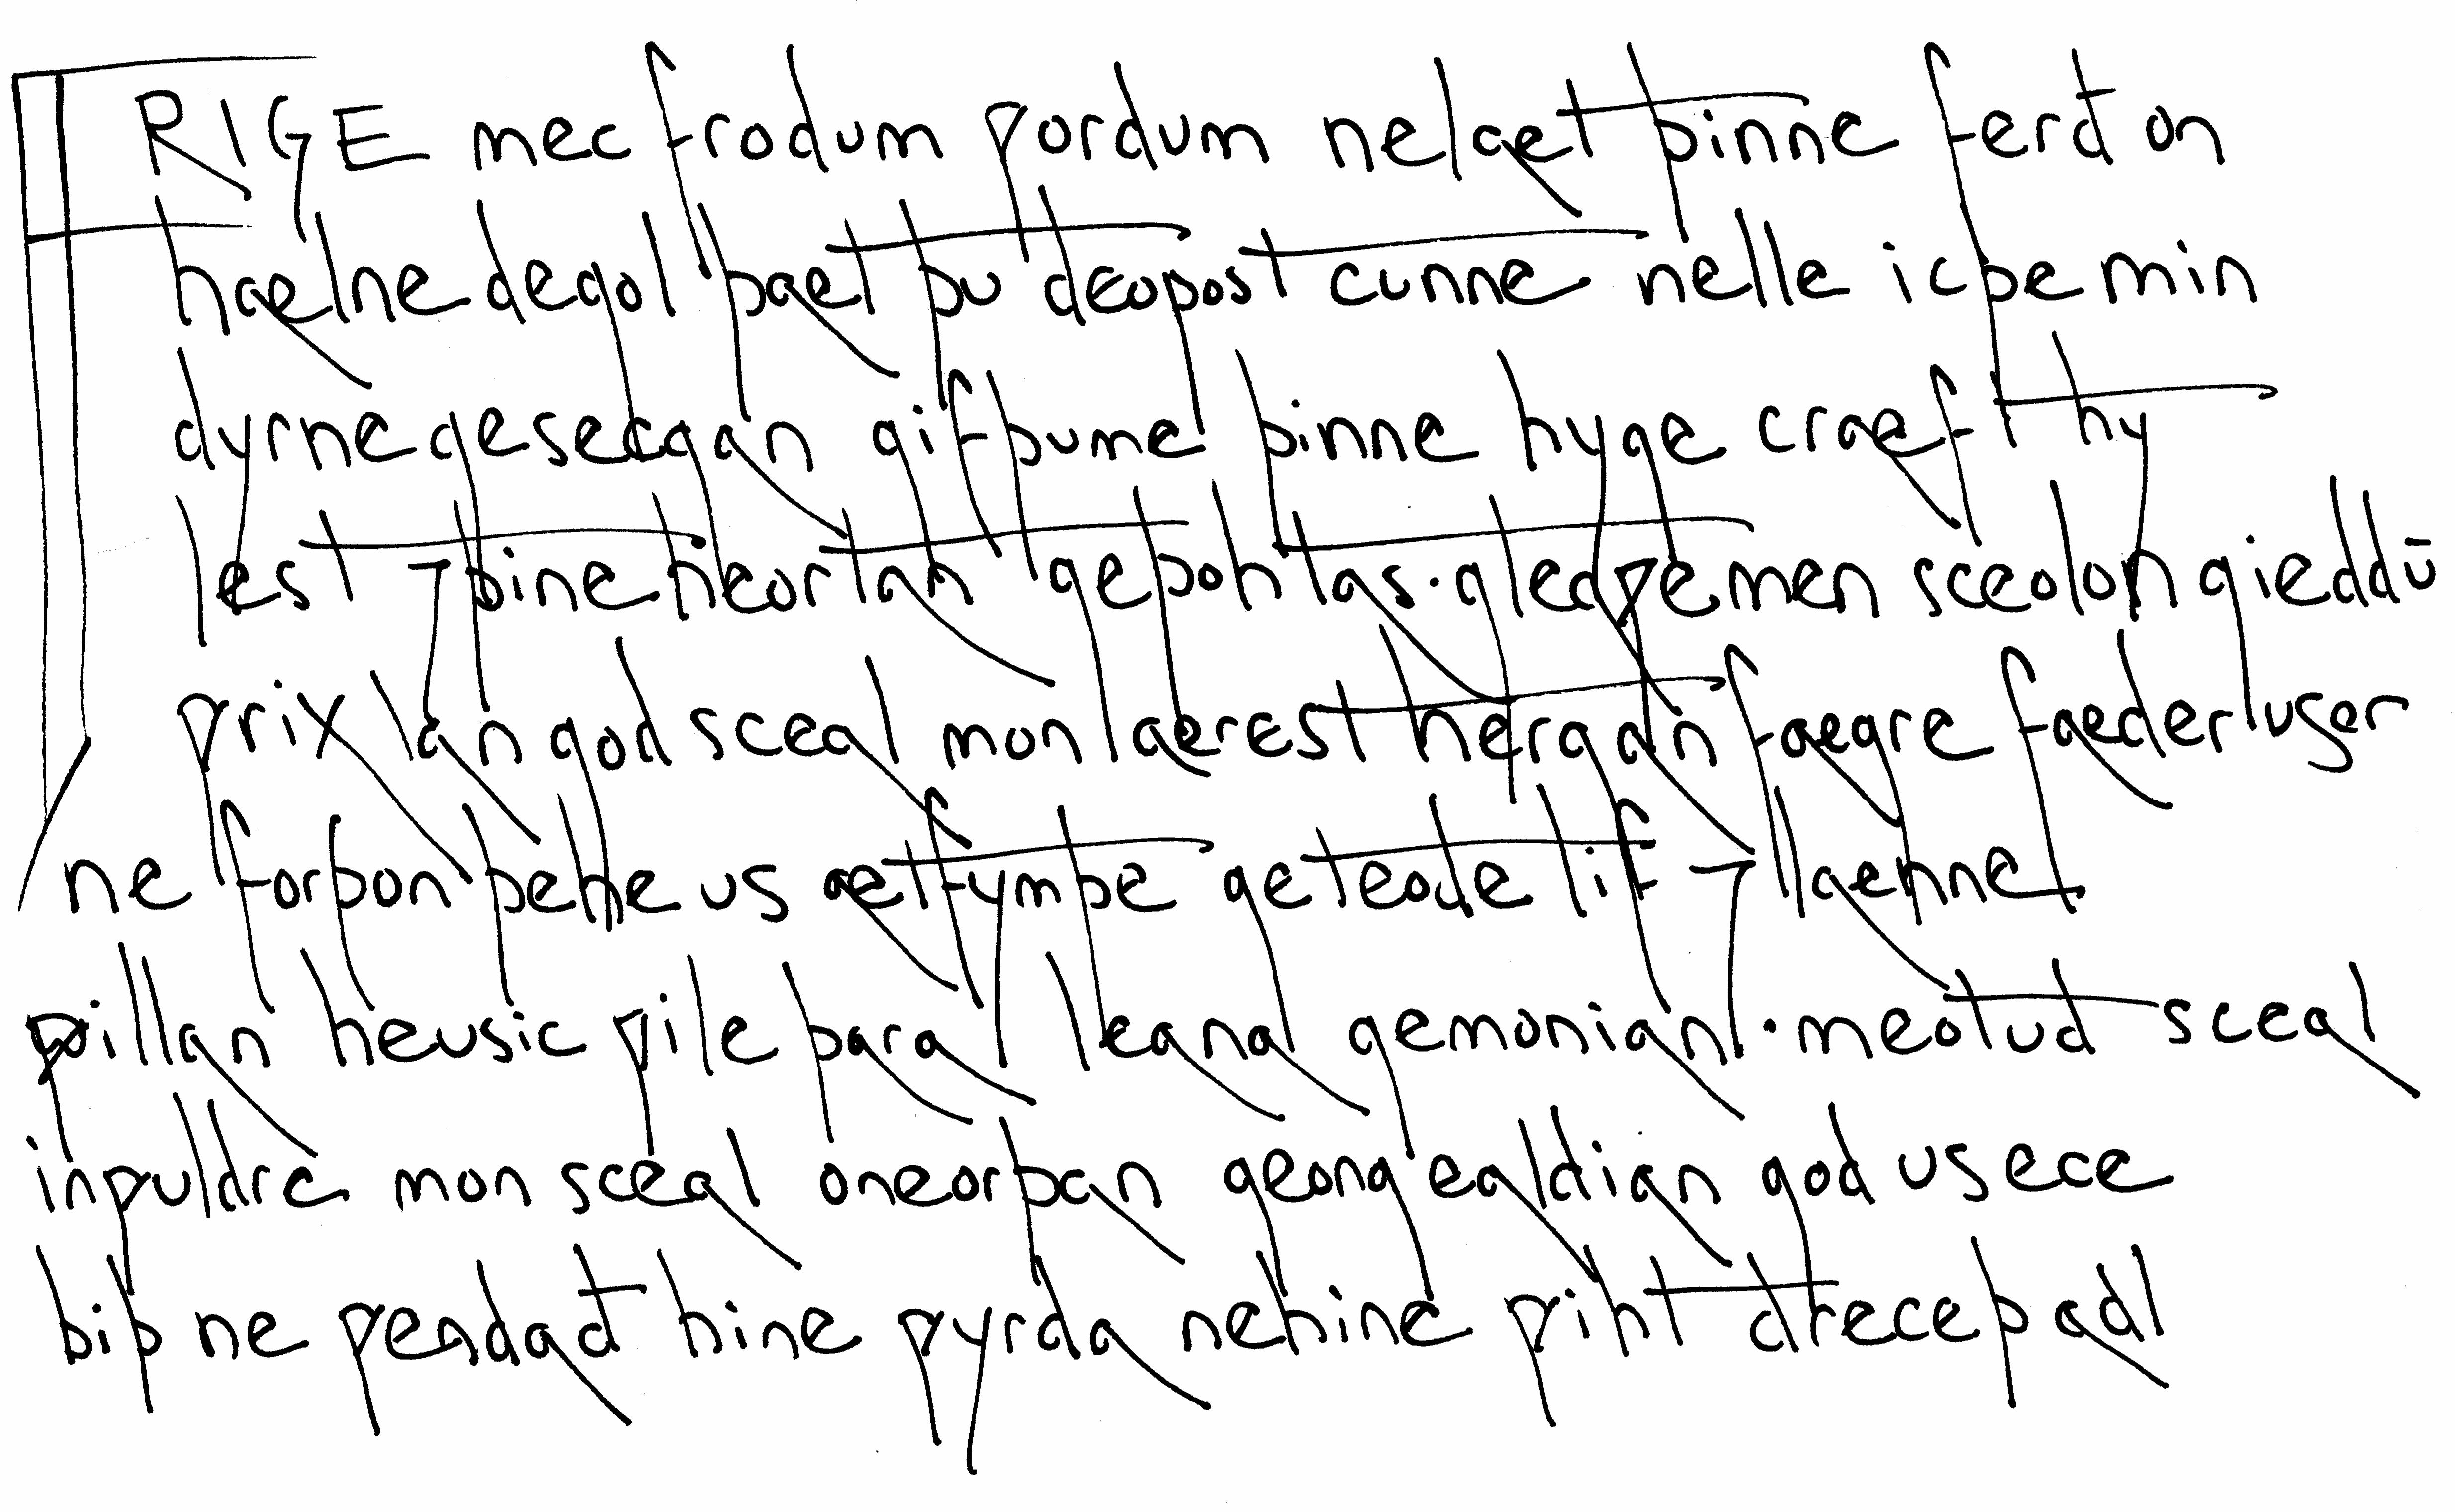 FRIGE mec frodum ƿordum ne læt þinne ferð on
hælne degol þæt þu deopost cunne nelle ic þe min
dyrne gesecgan gif þu me þinne hyge cræft hy
lest ⁊ þine heortan geþohtas · gleaƿe men sceolon gieddū
ƿrixlan god sceal mon ærest hergan fægre fæder user
ne forþon þe he us æt fymþe geteode lif ⁊ lænne
ƿillan he usic ƿile þara leana gemonian · meotud sceal
in ƿuldre mon sceal on eorþan geong ealdian god us ece
biþ ne ƿendað hine ƿyrda ne hine ƿiht dreceþ adl